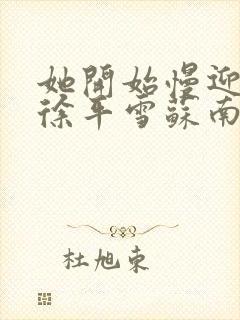 她開始慢迎
徐平雪蘇南
杜旭東